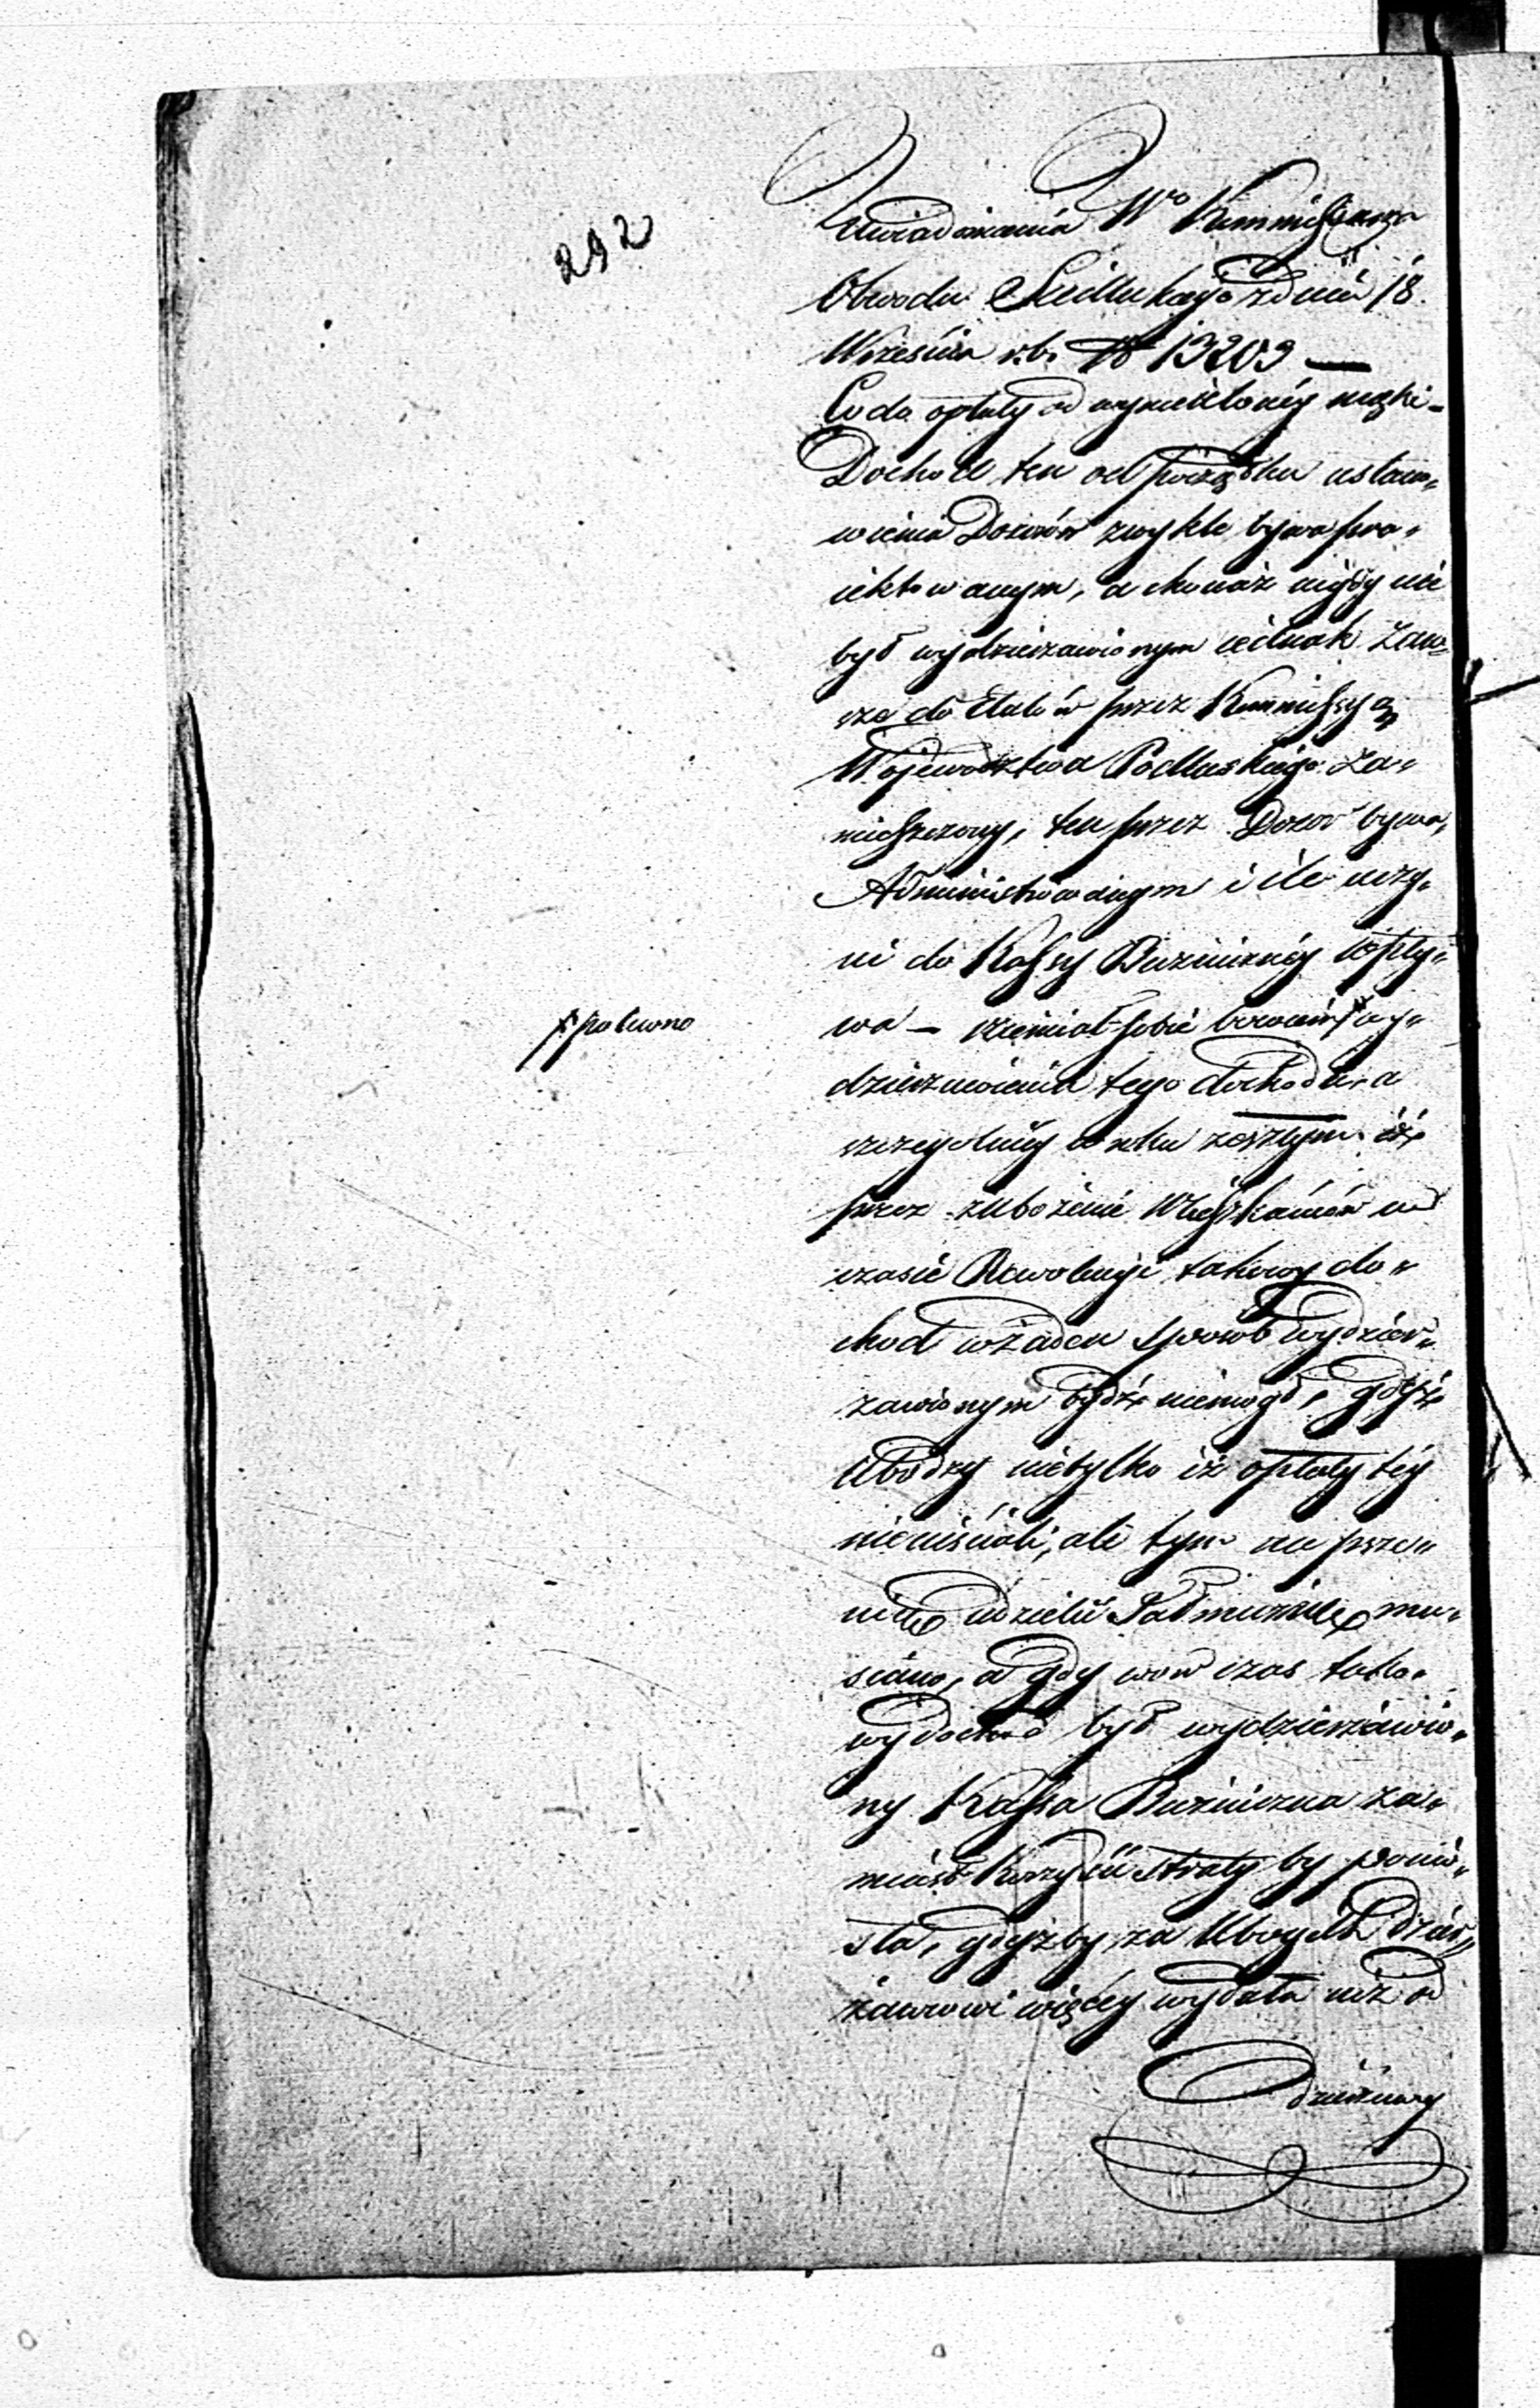 292
Uwiadomienia Wo Kommissarza
Obwodu Siedleckiego z dnia 18.
Września r.b. N 13209 —
Co do opłaty od mąki -
Dochod ten od początku ustano„
wienia Dozorów zwykle bywa pro„
iektowanym, a chociaż nigdy nie
był wydzierzawionym iednak zaw„
sze do Etatów przez Kommissyą
Wojewodztwa Podlaskiego za„
mieszczony, ten przez Dozor bywa„
Administrowanym i ile uczy„
ni do Kassy Bużniczney wpły„
wa —
dzierzawienia tego dochodu, a
szczegolniey w roku zeszłym iż
przez zubożenie Mieszkańców w
czasie Rewolucyi takowy do„
chod w żaden sposob wydzier„
zawionym bydź niemógł, gdyż
Ubodzy nietylko iż opłaty tey
nieuiścili, ale tym
udzielić musiano, a gdy wow czas tako„
wy dochod był wydzierzawio„
ny Kassa Bużniczna za„
miast korzyści straty by ponio„
sła, gdyżby za Ubogich dzier„
żawcowi więcey wydała niż od
dzierżawy